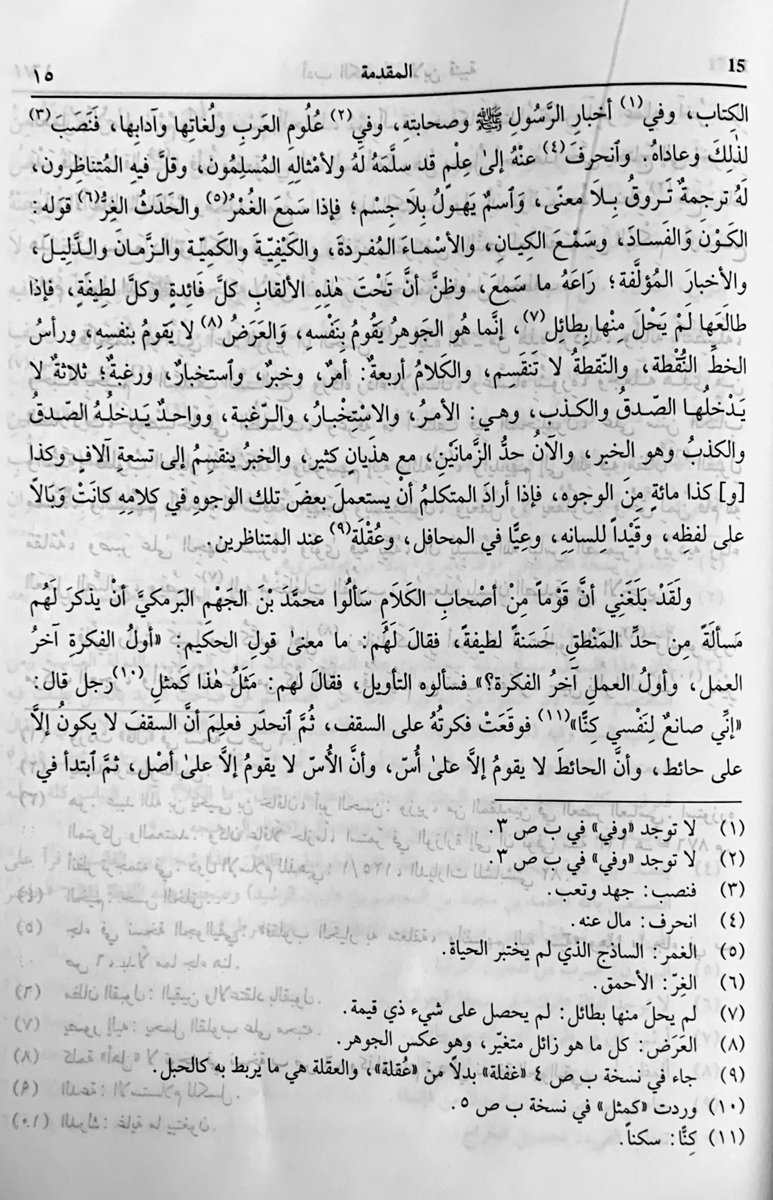 15 المقدمة ١٥
الكِتاب، وفي(١) أخبارِ الرَّسُولِ ﷺ وصحابته، وفي(٢) عُلُومِ العَربِ ولُغاتِها وآدابِها، فَنَصَبَ(٣)
لذٰلِكَ وعاداهُ. وٱنحرفَ(٤) عنْهُ إلىٰ عِلْمٍ قد سلَّمَهُ لهُ ولأمْثالِهِ المُسلِمُون، وقلَّ فيهِ المُتناظِرون،
لَهُ ترجمةٌ تَروقُ بِلاَ معنًى، وَٱسمٌ يَهولُ بِلاَ جِسْم؛ فإذا سَمِعَ الغُمْرُ(٥) والحَدَثُ الغِرُّ(٦) قوَله:
الكَوْنَ وَالفَسادَ، وسَمْعَ الكِيانِ، والأسْماءَ المُفردةَ، والكَيْفِيّةَ والكَمِيّة والزَّمانَ والدَّلِيلَ،
والأخبارَ المُؤلَّفة؛ رَاعَهُ ما سَمِعَ، وظنَّ أنَّ تَحْتَ هٰذِهِ الألقابِ كلَّ فائِدةٍ وكلَّ لطِيفَةٍ، فإذا
طالَعَها لَمْ يَحْلَ مِنْها بِطائِلٍ(٧)، إنَّما هُو الجَوهرُ يَقُومُ بِنَفْسهِ، وَالعَرَضُ(٨) لا يَقومُ بنفسِهِ، ورأسُ
الخطِّ النُّقْطة، والنّقطةُ لا تَنقَسِم، والكَلامُ أربعةٌ: أمرٌ، وخبرٌ، وٱستخبارٌ، ورغبةٌ؛ ثلاثةٌ لا
يَدْخلُها الصّدقُ والكذب، وهي: الأمرُ، والاسْتِخْبارُ، والرّغبة، وواحدٌ يَدخلُهُ الصّدقُ
والكذبُ وهو الخبر، والآنُ حدُّ الزَّمانَيْنِ، مع هذَيانٍ كثير، والخبرُ ينقسِمُ إلى تسعةِ آلافٍ وكذا
[و] كذا مائةٍ مِنَ الوجوه، فإذا أرادَ المتكلمُ أنْ يستعملَ بعضَ تلك الوجوهِ في كلامِهِ كانَتْ وَبَالاً
على لفظِه، وقَيْداً لِلسانِهِ، وعِيًّا في المحافل، وعُقْلَة(٩) عند المتناظرين.
ولَقَدْ بَلَغَنِي أنَّ قَوْماً مِنْ أصْحابِ الكَلاَمِ سَألُوا محمَّدَ بْنَ الجَهْمِ البَرمكيَّ أنْ يذكرَ لَهُم
مَسألَةً مِن حدِّ المَنْطقِ حَسَنةً لطيفةً، فقالَ لَهُم: ما معنىٰ قولِ الحكيم: «أولُ الفكرةِ آخرُ
العمل، وأولُ العملِ آخرُ الفكرة؟» فسألوه التأويل، فقالَ لهم: مَثَلُ هٰذا كَمثلِ(١٠) رجل قال:
«إنِّي صانعٌ لِنَفْسي كِنًّا»(١١) فوقَعَتْ فكرتُهُ على السقف، ثُمَّ ٱنحدَر فعلِمَ أنَّ السقفَ لا يكونُ إلاَّ
على حائط، وأنَّ الحائطَ لا يقومُ إلاَّ علىٰ أُسّ، وأنَّ الأُسّ لا يقومُ إلاَّ علىٰ أصْل، ثمَّ ٱبتدأ في
(١) لا توجد «وفي» في ب ص ٣.
(٢) لا توجد «وفي» في ب ص ٣.
(٣) فنصب: جهد وتعب.
(٤) انحرف: مال عنه.
(٥) الغمر: الساذج الذي لم يختبر الحياة.
(٦) الغِرّ: الأحمق.
(٧) لم يحلَ منها بطائل: لم يحصل على شيء ذي قيمة.
(٨) العَرَض: كل ما هو زائل متغيّر، وهو عكس الجوهر.
(٩) جاء في نسخة ب ص ٤ «غفلة» بدلاً من «عُقلة»، والعقَلة هي ما يربط به كالحبل.
(١٠) وردت «كمثل» في نسخة ب ص ٥.
(١١) كِنًّا: سكناً.